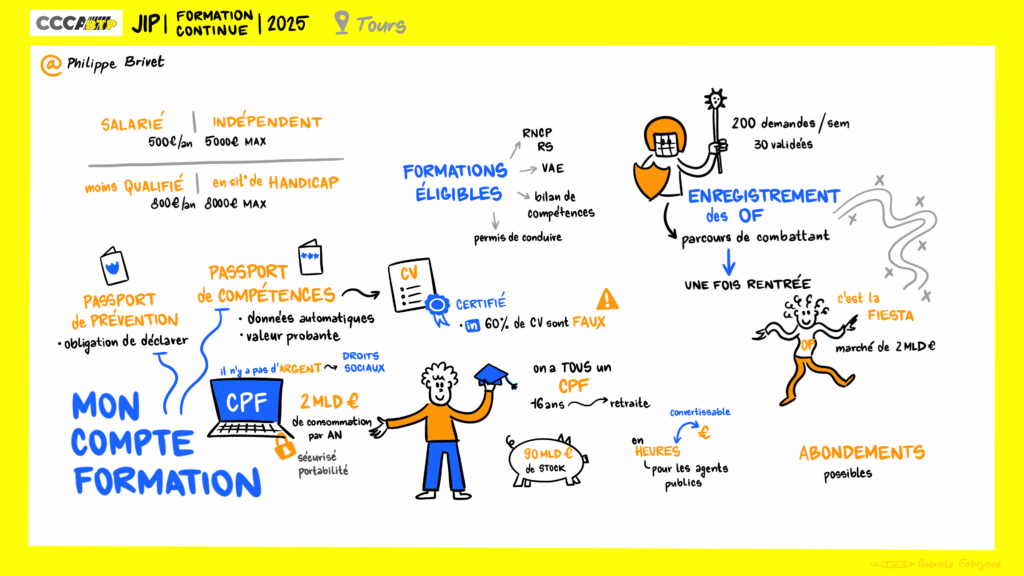 CCCA BTP JIP | FORMATION CONTINUE | 2025 Tours
@ Philippe Brivet
SALARIÉ | INDÉPENDENT
500€/an 5000€ MAX
moins QUALIFIÉ | en sit° de HANDICAP
800€/an 8000€ MAX
FORMATIONS
ÉLIGIBLES
RNCP
RS
VAE
bilan de
compétences
permis de conduire
200 demandes/sem
30 validées
ENREGISTREMENT
des OF
parcours de combattant
UNE FOIS RENTRÉE
c'est la
FIESTA
OF
marché de 2MLD€
PASSPORT
de PRÉVENTION
• obligation de déclarer
PASSPORT
de COMPÉTENCES
• données automatiques
• valeur probante
CV
CERTIFIÉ
• in 60% de CV sont FAUX
MON
COMPTE
FORMATION
il n'y a pas d'ARGENT
DROITS
SOCIAUX
CPF
2 MLD €
de consommation
par AN
sécurisé
portabilité
on a TOUS un
CPF
16ans retraite
90 MLD €
de STOCK
en
HEURES
pour les agents
publics
convertissable
€
ABONDEMENTS
possibles